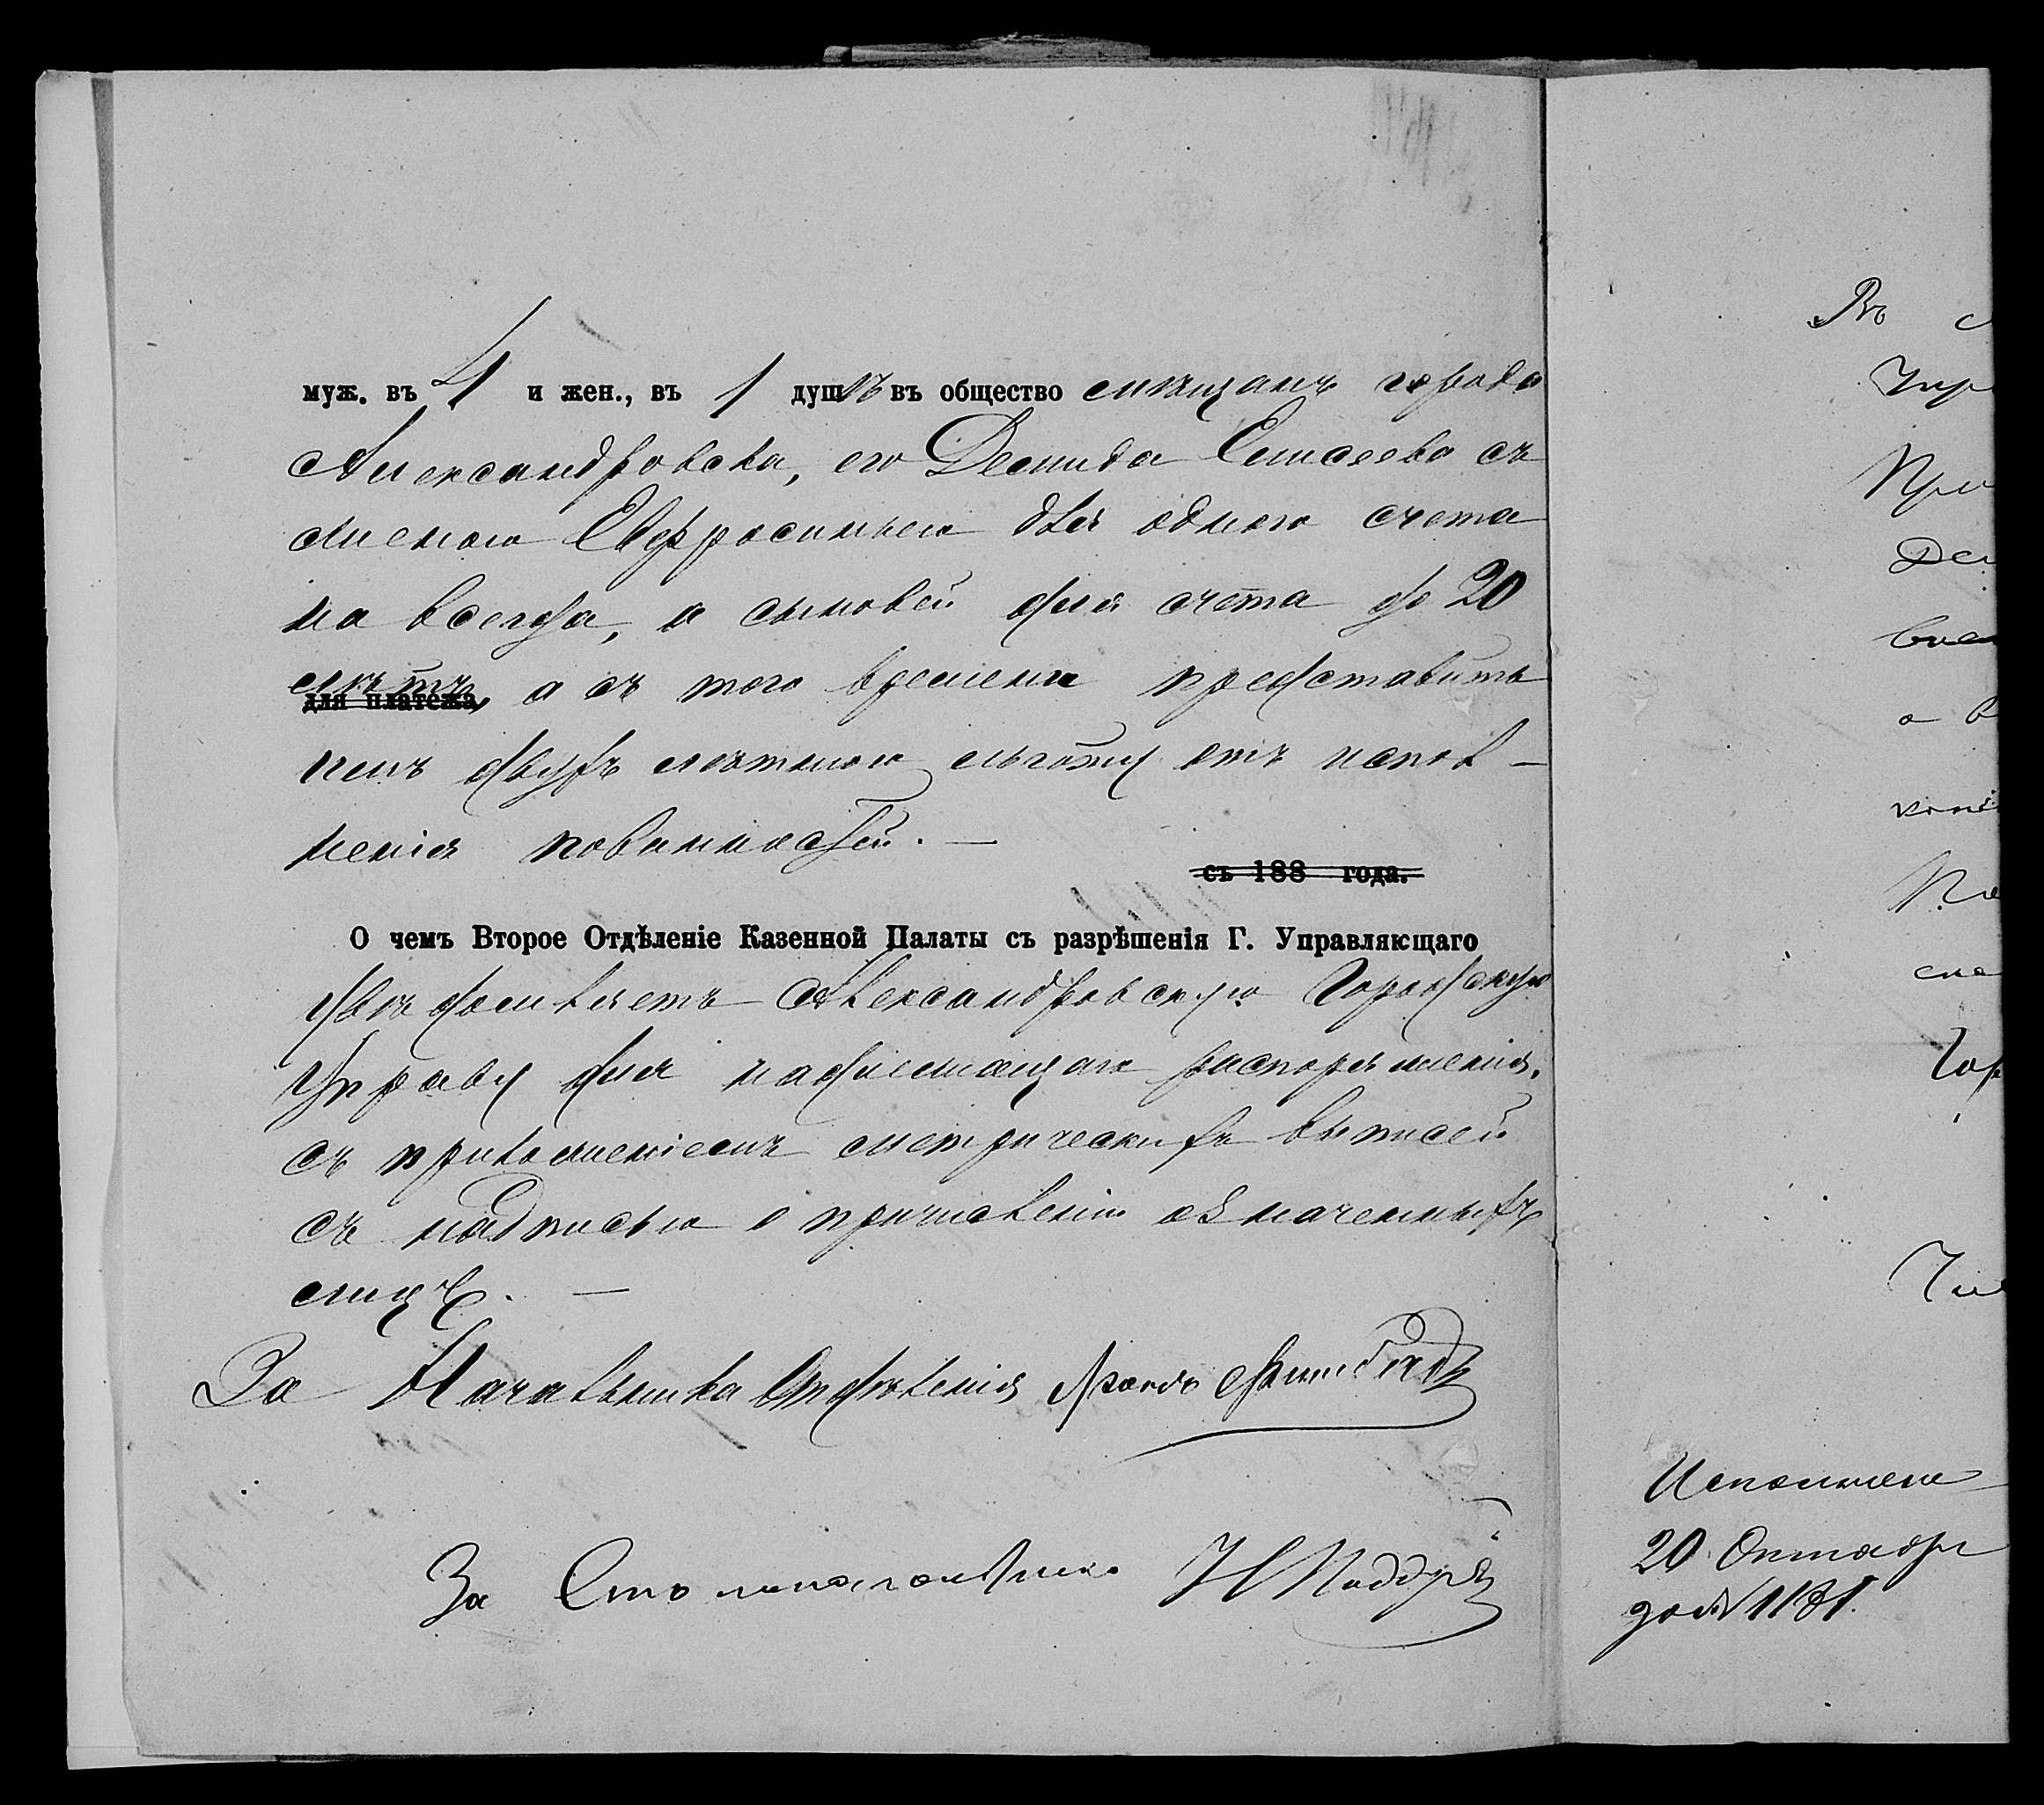 муж. въ 4 и жен., въ 1 душѣ въ общество мѣщанъ города
Александровска, его Демида Елисеева съ
женою Евфросиньею для одного счета
на всегда, а сыновей для счета до 20
лѣтъ
для платежа, а съ того времени предоставить
имъ двухъ лѣтнюю льготу отъ испол-
ненія повинностей. —
съ 188 года.
О чемъ Второе Отдѣленіе Казенной Палаты съ разрѣшенія Г. Управляющаго
увѣдомляетъ Александровскую Городскую
Управу для надлежащаго распоряженія,
съ приложеніемъ метрическихъ выписей
съ надписью о причисленіи означенныхъ
лицъ. —
За Начальника Отдѣленія
За Столоначальника
Въ
Упр
При
Дем
а в
копі
По
Гор
Чле
Исполнено
20 Октября
года 1881.